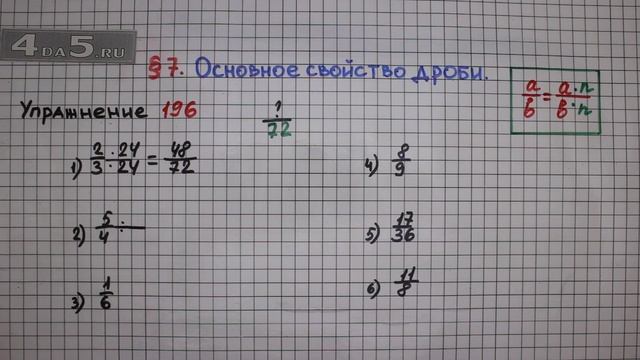 4DA5.RU
§7. Основное свойство дроби.
Упражнение 196
?/72
a/b = a·n/b·n
1) 2·24/3·24 = 48/72
2) 5/4
3) 1/6
4) 8/9
5) 17/36
6) 11/8